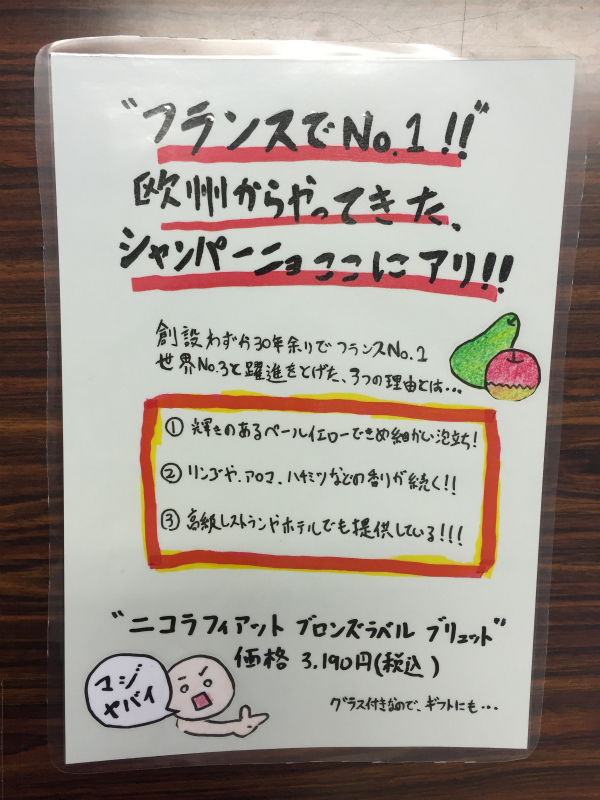 "フランスでNo.1!!"
欧州からやってきた、
シャンパーニュここにアリ!!
創設わずか30年余りでフランスNo.1
世界No.3と躍進をとげた、3つの理由とは・・・
① 輝きのあるペールイエローできめ細かい泡立ち!
② リンゴや、アロマ、ハチミツなどの香りが続く!!
③ 高級レストランやホテルでも提供している!!!
"ニコラフィアット ブロンズラベル ブリュット"
価格 3.190円(税込)
マジ
ヤバイ
グラス付きなので、ギフトにも・・・